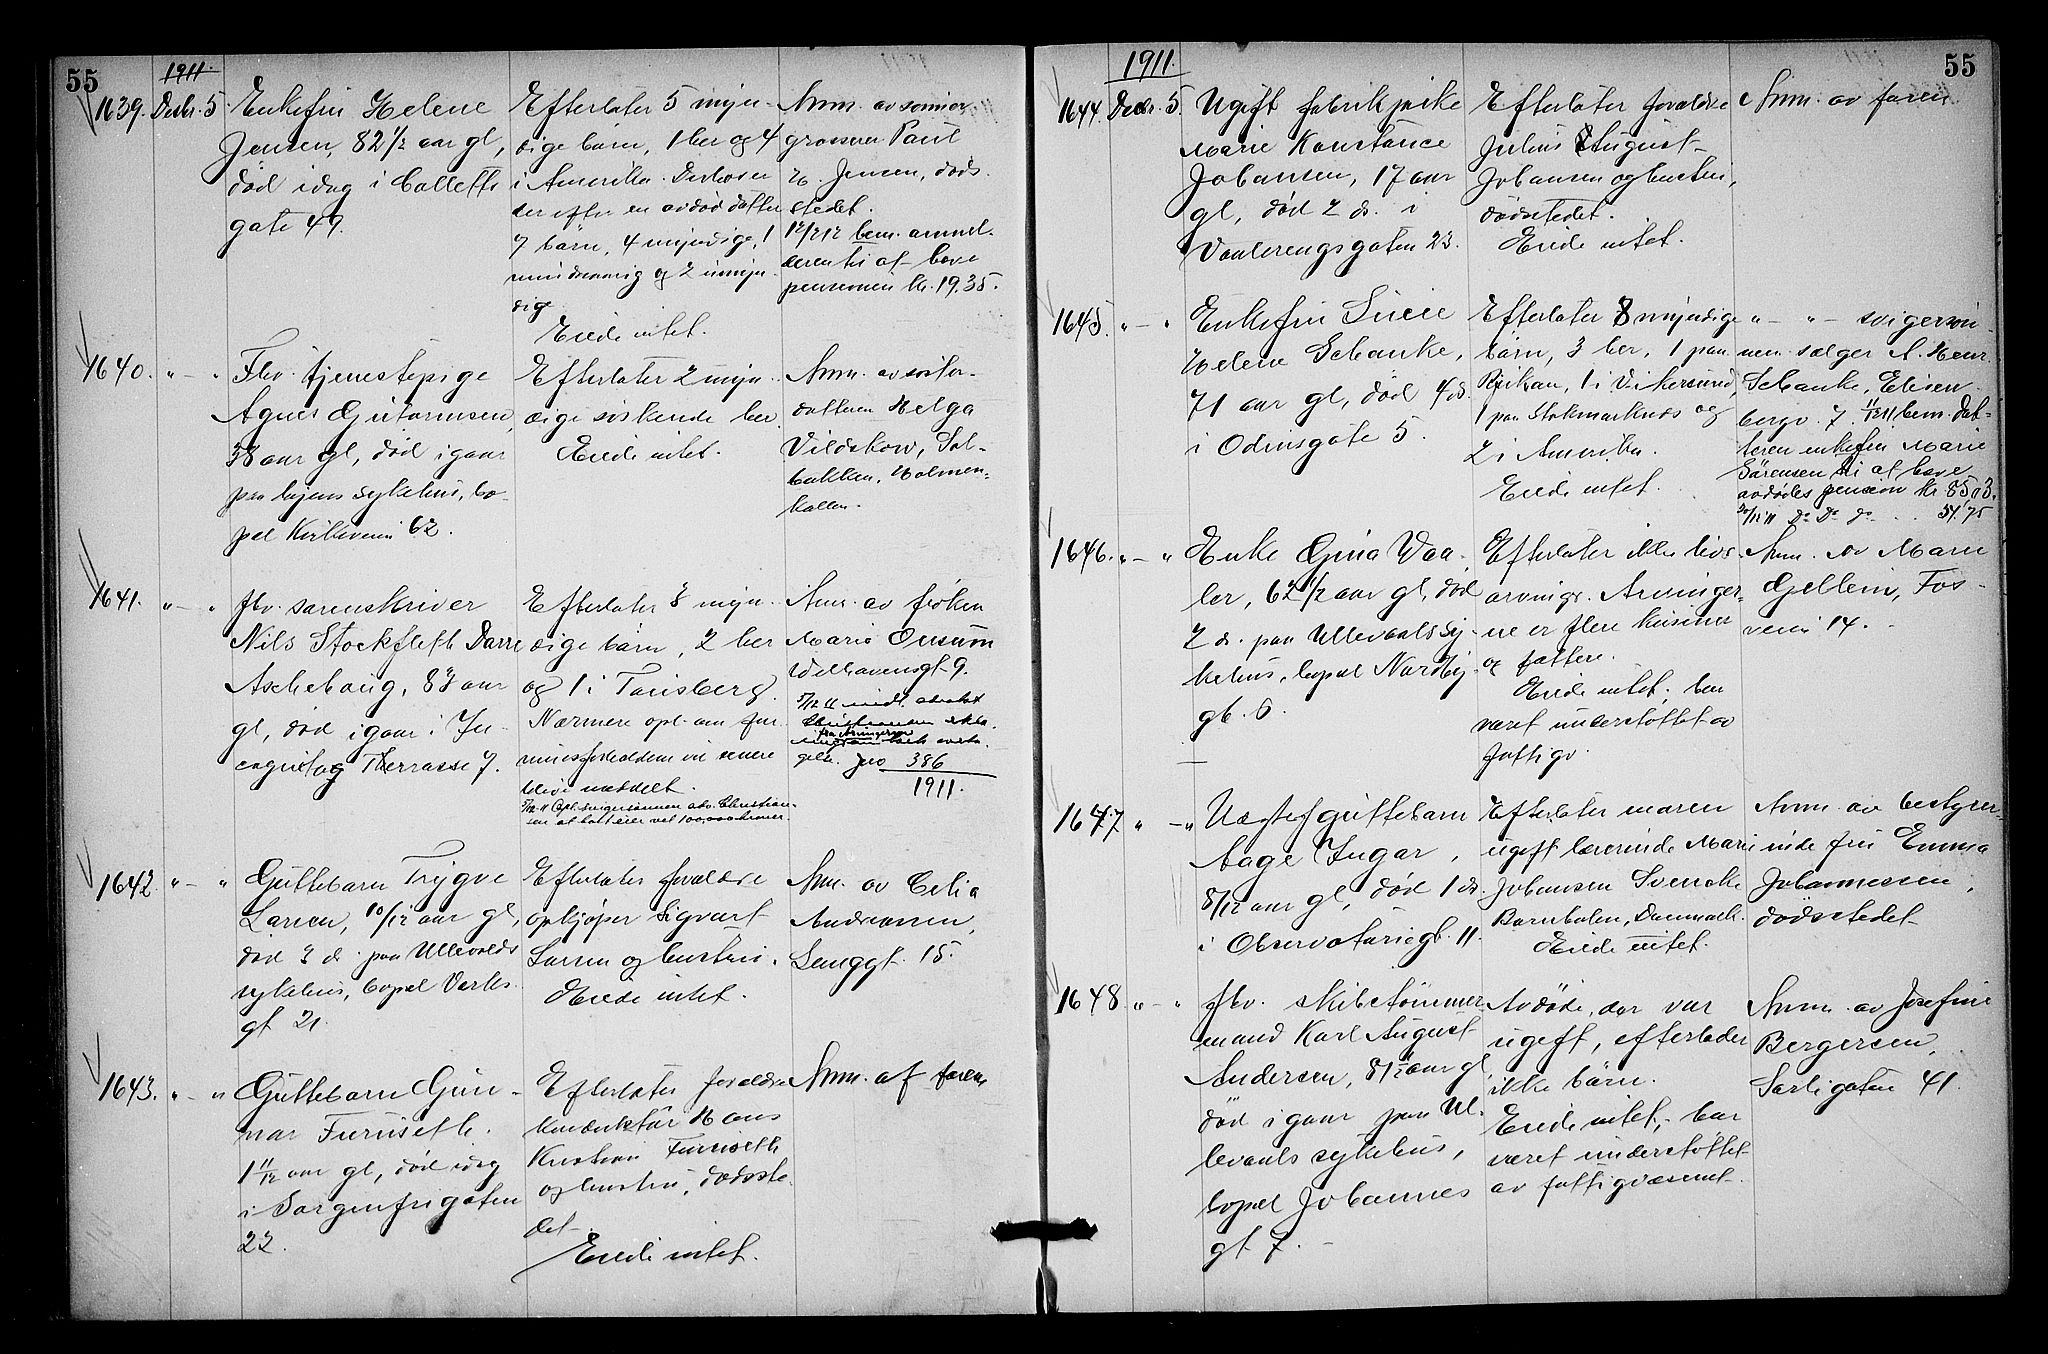 55
1911.
1639. Decbr. 5
Enkefru Helene
Jensen, 82 1/2 aar gl,
död idag i Colletts
gate 49.
Efterlater 5 myn-
dige børn, 1 her og 4
i Amerika. Desuden
efter en avdød datter
7 børn, 4 myndige, 1
mindreaarig og 2 umyn
dig
Eiede intet.
Anm. av sønnen
grosserer Paul
H. Jensen, döds-
stedet.
bem. anmel-
deren til at heve
pensionen kr. 19.35.
1640. " — "
Fhv. tjenestepige
Agnes Gutormsen,
38 aar gl, död igaar
paa byens sykehus, bo-
pæl Kirkeveien 62.
Efterlater 2 myn-
dige söskende her.
Eiede intet.
Anm. av søster-
datteren Helga
Vildskow, Sol-
bakken, Holmen-
kollen.
1641. " — "
fhv. sorenskriver
Nils Stockfleth Darre
Aschehoug, 83 aar
gl, död igaar i In-
cognito Terrasse 7.
Efterlater 3 myn-
dige børn, 2 her
og 1 i Tønsberg.
Nærmere opl. om for-
muesforholdene vil senere
blive meddelt.
5/12 11 Opl. svigersønnen adv. Christian-
sen at boet eier vel 100,000 kroner.
Anm. av frøken
Marie Onsum
Welhavensgt. 9.
5/12 11 advokat
Christiansen
fra arvingerne
386
1911.
1642. " — "
Guttebarn Trygve
Larsen, 10/12 aar gl,
död 3 ds. paa Ullevolds
sykehus, bopæl Verks-
gt 21.
Efterlater forældre
opkjøper Sigvart
Larsen og hustru.
Eiede intet.
Anm. av Celia
Andreassen,
Lenggt. 15.
1643. " — "
Guttebarn Gun-
nar Furuseth.
1 11/12 aar gl, död idag
i Sorgenfrigaten
22.
Efterlater forældre
konduktör Hans
Kristian Furuseth
og hustru, dødsste-
det.
Eiede intet.
Anm. af faren
55
1911.
1644. Decbr. 5.
Ugift fabrikpike
Marie Konstance
Johansen, 17 aar
gl, död 2 ds. i
Vaalerengsgaten 23.
Efterlater forældre
Julius August
Johansen og hustru,
dødsstedet.
Eiede intet.
Anm. av faren
1645. " — "
Enkefru
Helene Schanke,
71 aar gl, död 4 ds.
i Odinsgate 5.
Efterlater 8 myndige
børn, 3 her, 1 paa
Rjukan, 1 i Vikersund,
1 paa Stokmarknes og
2 i Amerika.
Eiede intet.
" — " — svigersøn-
nen sælger A. Henr.
Schanke, Eilsen-
bergv. 7. 11/12 11 bem. dat-
teren enkefru Marie
Sörensen til at heve
avdødes pension kr 85,03.
Do Do do 54.75
1646. " — "
Enke Gina Waa-
ler, 62 1/2 aar gl, död
2 ds. paa Ullevaals sy-
kehus, bopæl Nordby-
gt. 6.
Efterlater ikke livs-
arvinger. Arvinger-
ne er flere kusiner
og fættere.
Eiede intet; hen
været understøttet av
fattigv.
Anm. av Marie
Gjellein, Fos-
veien 14.
1647. " — "
Uægtef guttebarn
Aage Ingar,
8/12 aar gl, död 1 ds.
i Observatoriegt. 11.
Efterlater moren
ugift lærerinde Marie
Johansen Svenske
Bornholm, Danmark.
Eiede intet.
Anm. av bestyrer-
inde fru Emma
Johannessen,
dödsstedet
1648. " — "
fhv. skibstømmer-
mand Karl August
Andersen, 81 1/2 aar gl
död igaar paa Ul-
levaals sykehus,
bopæl Johannes
gt 7.
Avdøde, der var
ugift, efterlader
ikke børn.
Eiede intet, har
været understøttet
av fattigvæsenet.
Anm. av Josefine
Bergersen,
Sarsgaten 41